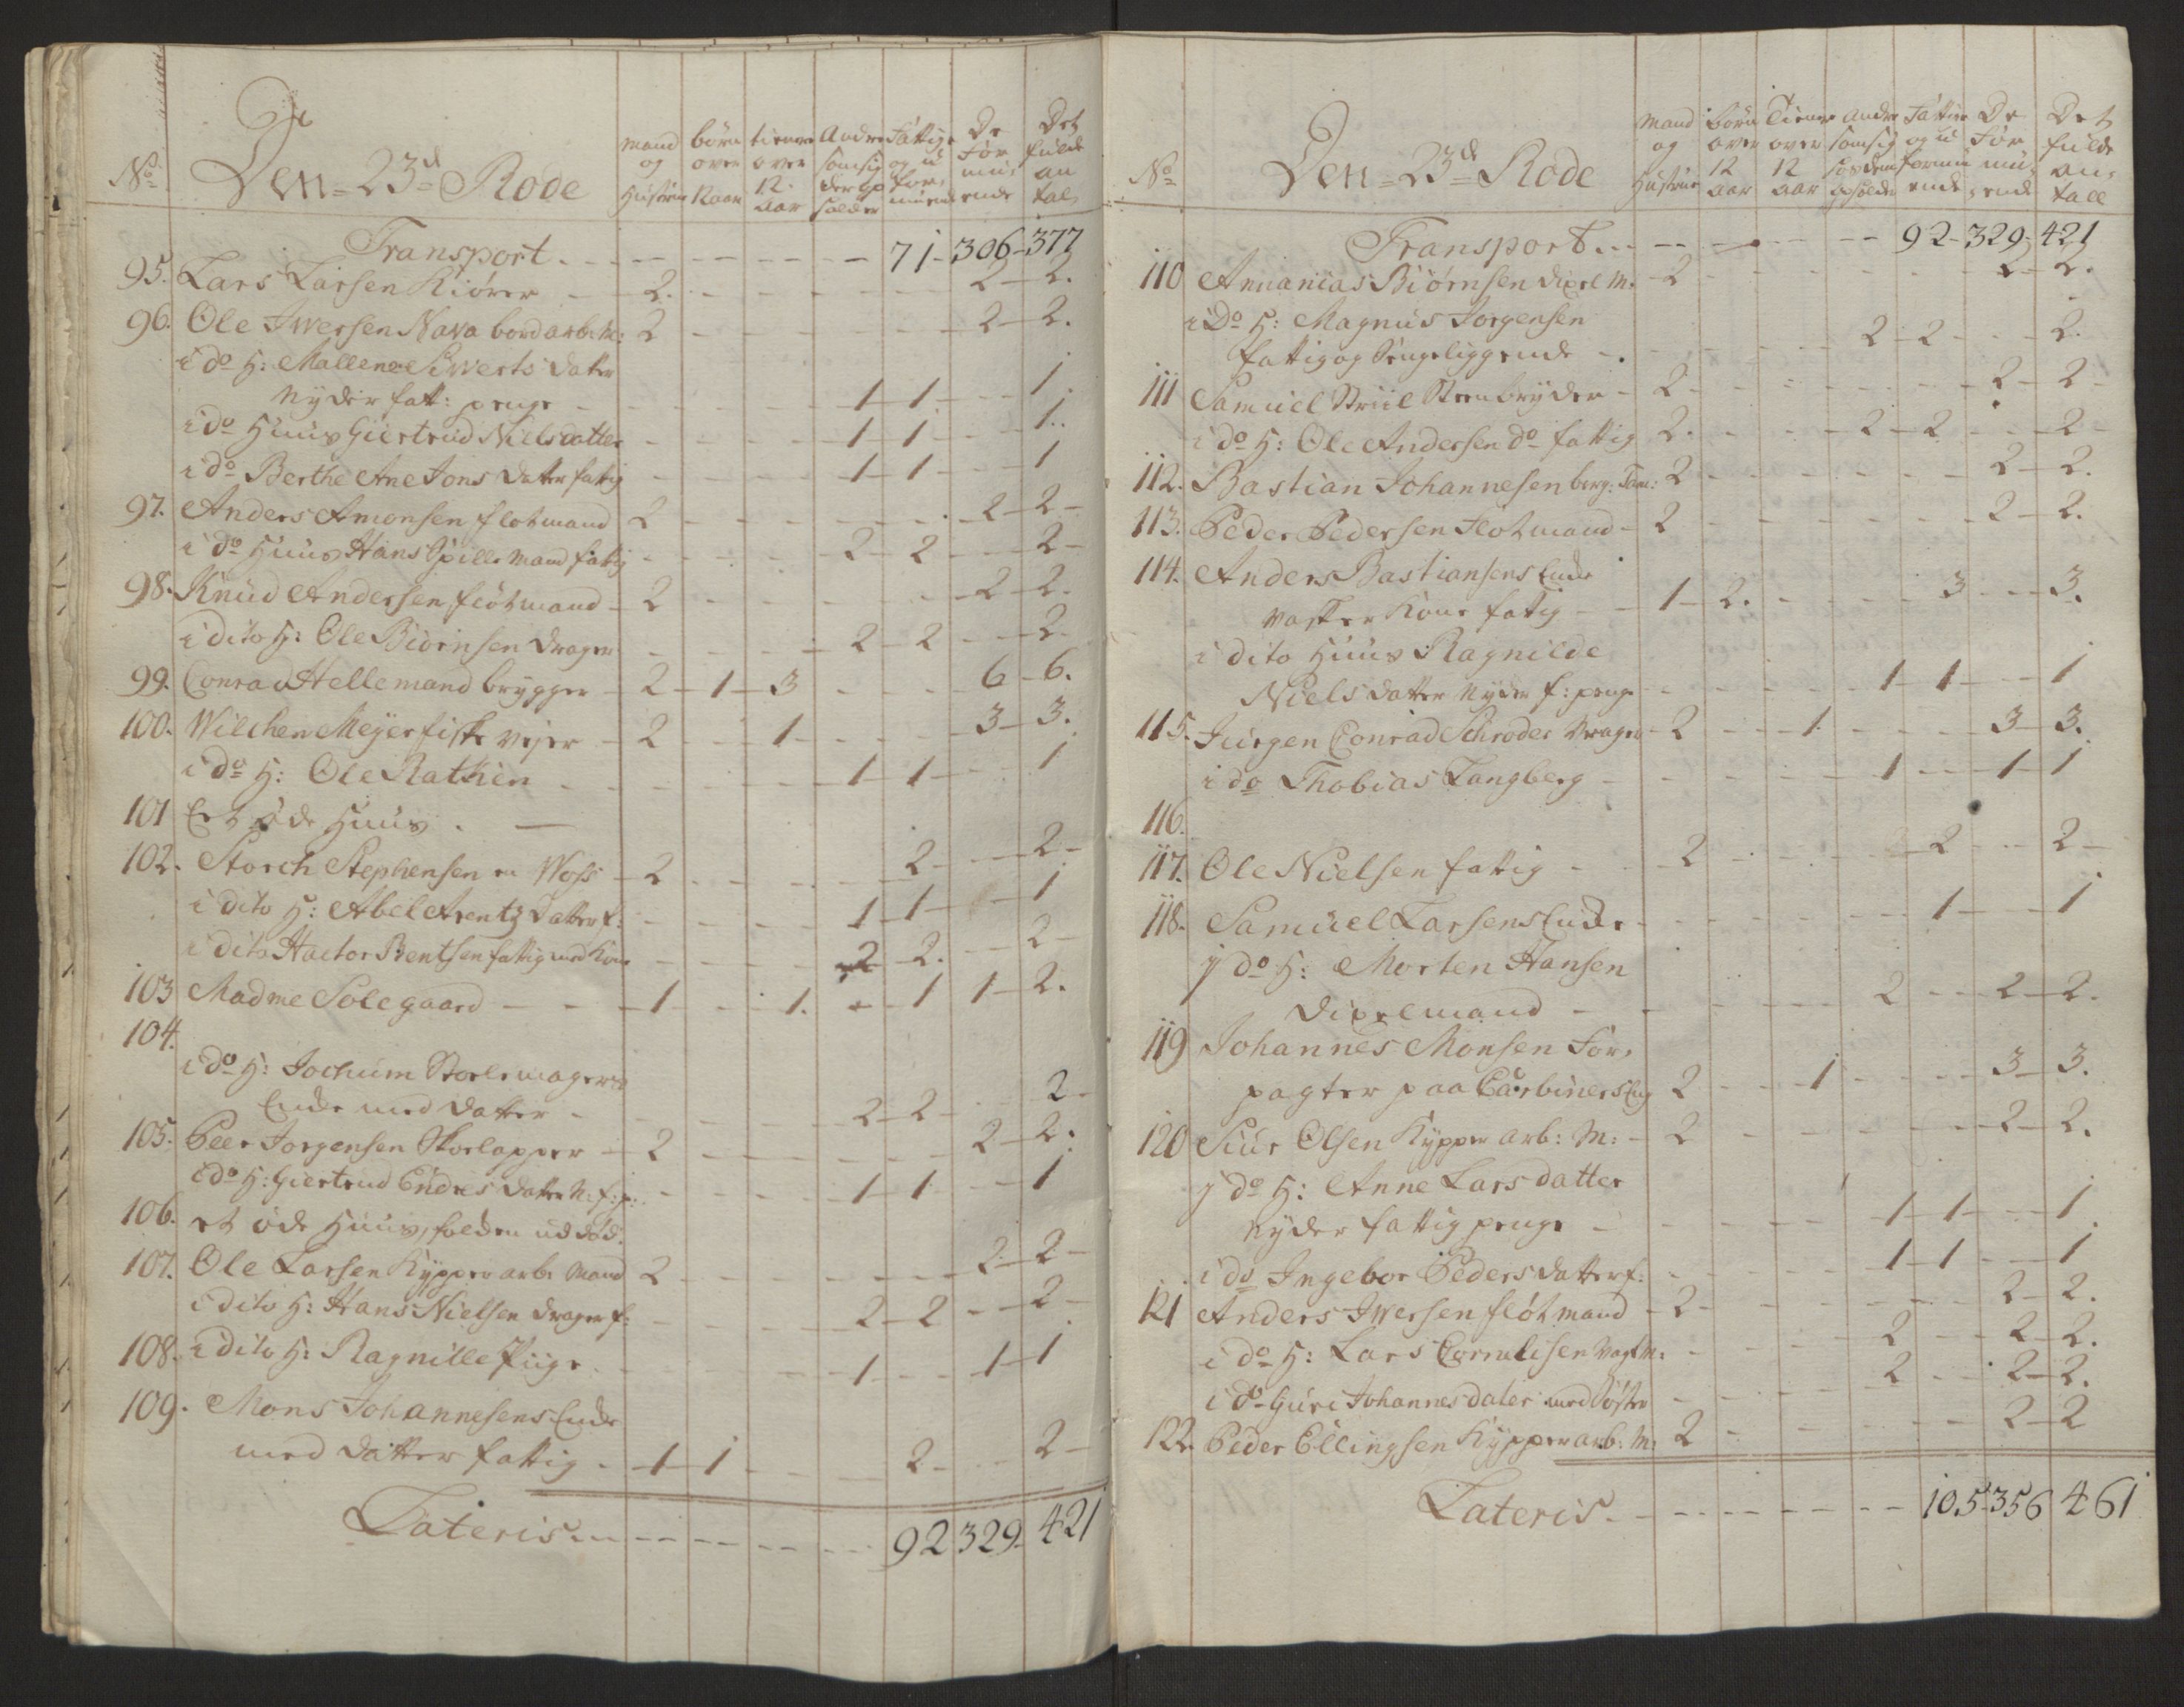 No. Den 23d Rode mand og Hustrue børn over 12 aar tienere over 12. aar Andre som sig der op holder Fattige og u for, muende De For mu, ende Det fulde an tal
Transport. - - - - - - 71 - 306 - 377
95. Lars Larsen Kiører - 2. - - - 2 - 2.
96. Ole Iwersen Nava bord arb: M: 2 - - - 2 - 2.
i do H: Mallene Siwerts dater
Nyder fatt: penge - - - 1 - 1 - - 1.
i do Huus Giertrud Nielsdatter - - - 1 - 1 - - 1.
i do Berthe Ane Jons datter fattig - - - 1 - 1 - - 1
97. Anders Amonsen flotmand 2 - - - 2 - 2 -
i do Huus Hans Spille Mand fattig - - - 2 - 2 - - 2 -
98. Knud Andersen flotmand - 2 - - - 2 - 2.
i dito H: Ole Biørnsen drager - - - 2 - 2 - - 2.
99. Conrad Hellemand brygger - 2 - 1 - 3 - - - 6 - 6.
100. Wilchen Meyer fiske vejer - 2 - - 1 - - - 3 - 3.
i do H: Ole Rathien - - - 1 - 1 - - 1
101 Et øde Huus. -
102. Storch Stephensen en Woss - 2 - - - 2 - - 2 -
i dito H: Abel Arentz datter f: - - - 1 - 1 - - 1
i dito Hactor Bentsen fattig med Kone - - - 2 - 2. - - 2 -
103 Madme Solegaard - - - 1 - - 1. - 1 1 - 2.
104.
i do H: Jochum Stoelemagers
Enke med datter - - - 2 - 2 - - 2 -
105. Peer Jorgensen Skoelapper - 2 - - - 2 - 2.
i do H: Giertrud Endres datter N: f: p: - - - 1 - 1 - - 1
106. et øde Huus, folden ud død.
107. Ole Larsen Kypper arb: Mand 2 - - - 2 - 2 -
i dito H: Hans Nielsen drager f: - - - 2 - 2 - - 2 -
108. i dito H: Ragnille Piige. - - - 1 - - 1 - 1
109. Mons Johannesens Enke
med datter fattig - 1 - 1 - - - 2 - - 2 -
Lateris - - - - - 92 329 - 421
No. Den 23d Rode Mand og Hustrue børn over 12 aar Tienere over 12 aar andre som sig der opholder Fattige og u formu ende De For mu, ende Det fulde an, tall
Transport. - - - - - 92 - 329 - 421
110 Annanias Biørnsen dixel M. - 2 - - - 2 - 2.
i Do H: Magnus Jorgensen
fattig og Sengeliggende - - - 2 - 2 - - 2.
111 Samuel Striil Steenbryder - 2 - - - 2 - 2 -
i do H: Ole Andersen do fattig 2. - - - 2 - 2 - - 2 -
112. Bastian Johannesen berg: Tam: 2 - - - 2 - 2.
113. Peder Pedersen Flotmand - 2 - - - 2 - 2.
114. Anders Bastiansens Enke
Vasker Kone fattig - - 1 - 2. - - - 3 - - 3.
i dito Huus Ragnilde
Niels datter Nyder f: penge - - - 1 - 1 - - 1
115. Jürgen Conrad Schroder Vrager - 2 - - 1. - - - 3 - 3.
i do Thobias Langberg - - - 1 - - 1 - 1
116.
117. Ole Nielsen fattig - - 2 - - - 2 - - 2 -
118. Samuel Larsens Enke - - - 1 - - 1
J do H: Morten Hansen
dixelmand - - - 2 - - 2 - 2.
119 Johannes Monsen For,
pagter paa Carbiners Eng 2 - - 1 - - - 3 - 3.
120 Siur Olsen Kypper arb: M: - 2 - - - 2 - 2.
J do H: Anne Lars datter
Nyder fattig penge - - - 1 - 1 - - 1.
i do Ingebor Peders datter f: - - - 1 - 1 - - 1
121 Anders Iwersen flotmand - 2 - - - 2 - 2.
i do H: Lars Cornelisen Vagt M: - - - 2 - - 2 - 2.
i do Guri Johannes dater med Søster - - - 2 - - 2 - 2.
122. Peder Ellingsen Kypper arb: M: 2 - - - 2 - 2
Lateris. - - - - - - 105 - 356 461